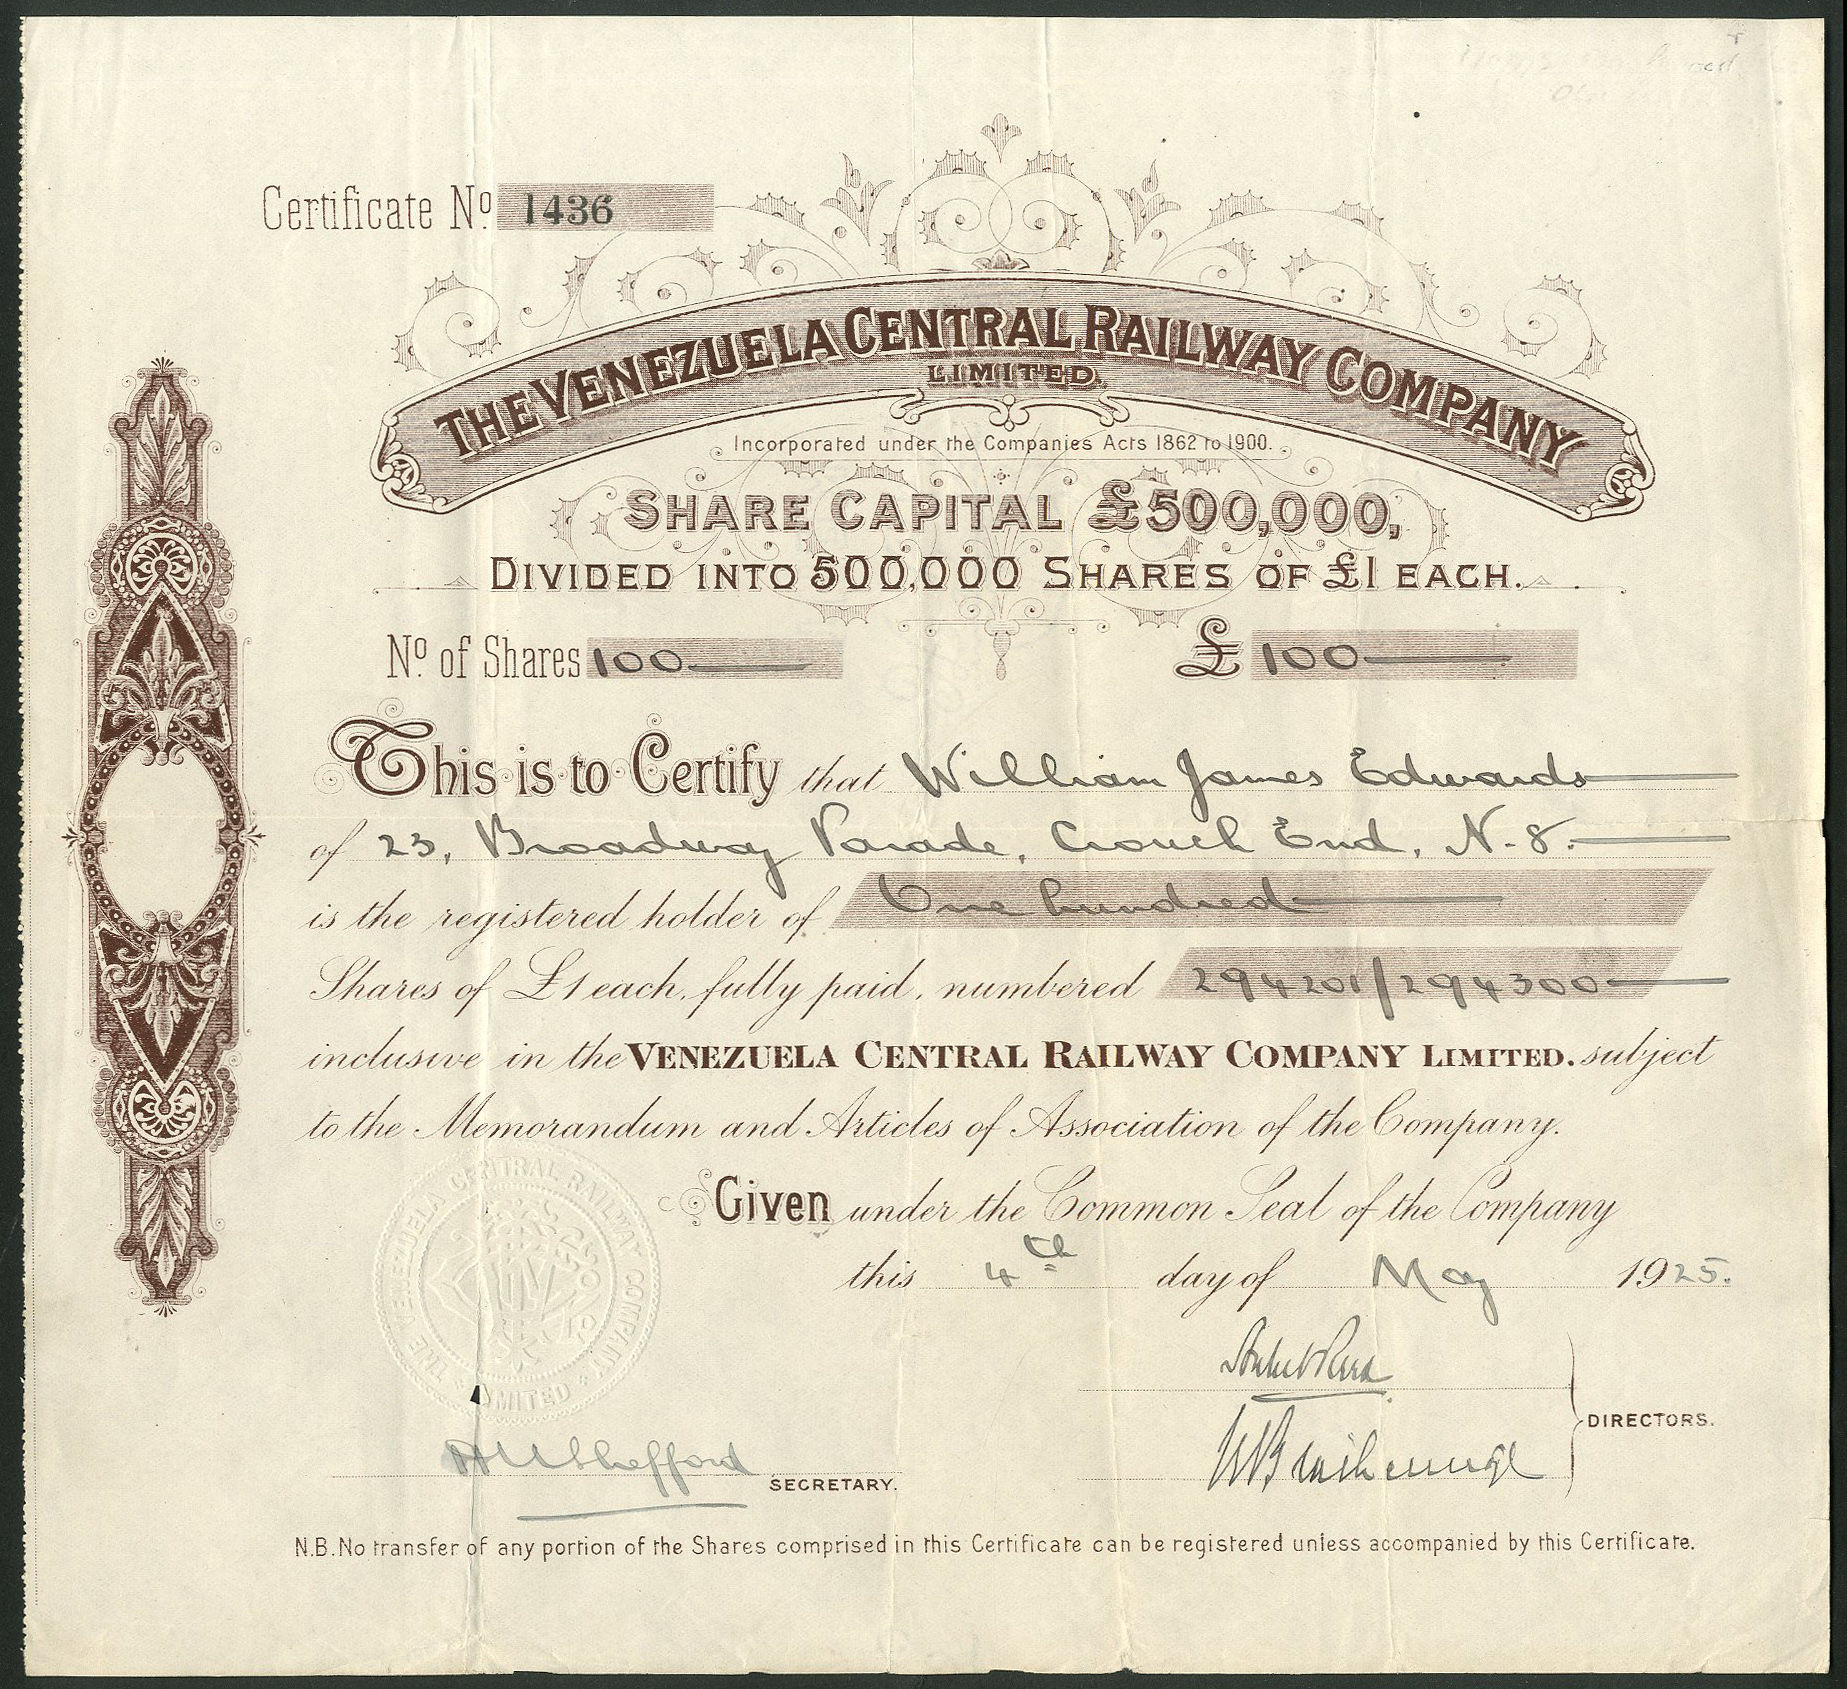 Certificate No. 1436
THE VENEZUELA CENTRAL RAILWAY COMPANY
LIMITED.
Incorporated under the Companies Acts 1862 to 1900.
SHARE CAPITAL £500,000,
DIVIDED INTO 500,000 SHARES OF £1 EACH.
No. of Shares 100 £ 100
This is to Certify that William James Edwards
of 23, Broadway Parade, Crouch End, N. 8.
is the registered holder of One hundred
Shares of £1 each, fully paid, numbered 294201/294300
inclusive in the VENEZUELA CENTRAL RAILWAY COMPANY LIMITED. subject
to the Memorandum and Articles of Association of the Company.
Given under the Common Seal of the Company
this 4th day of May 1925.
THE VENEZUELA CENTRAL RAILWAY COMPANY LIMITED
DIRECTORS.
Shefford
SECRETARY.
N.B. No transfer of any portion of the Shares comprised in this Certificate can be registered unless accompanied by this Certificate.